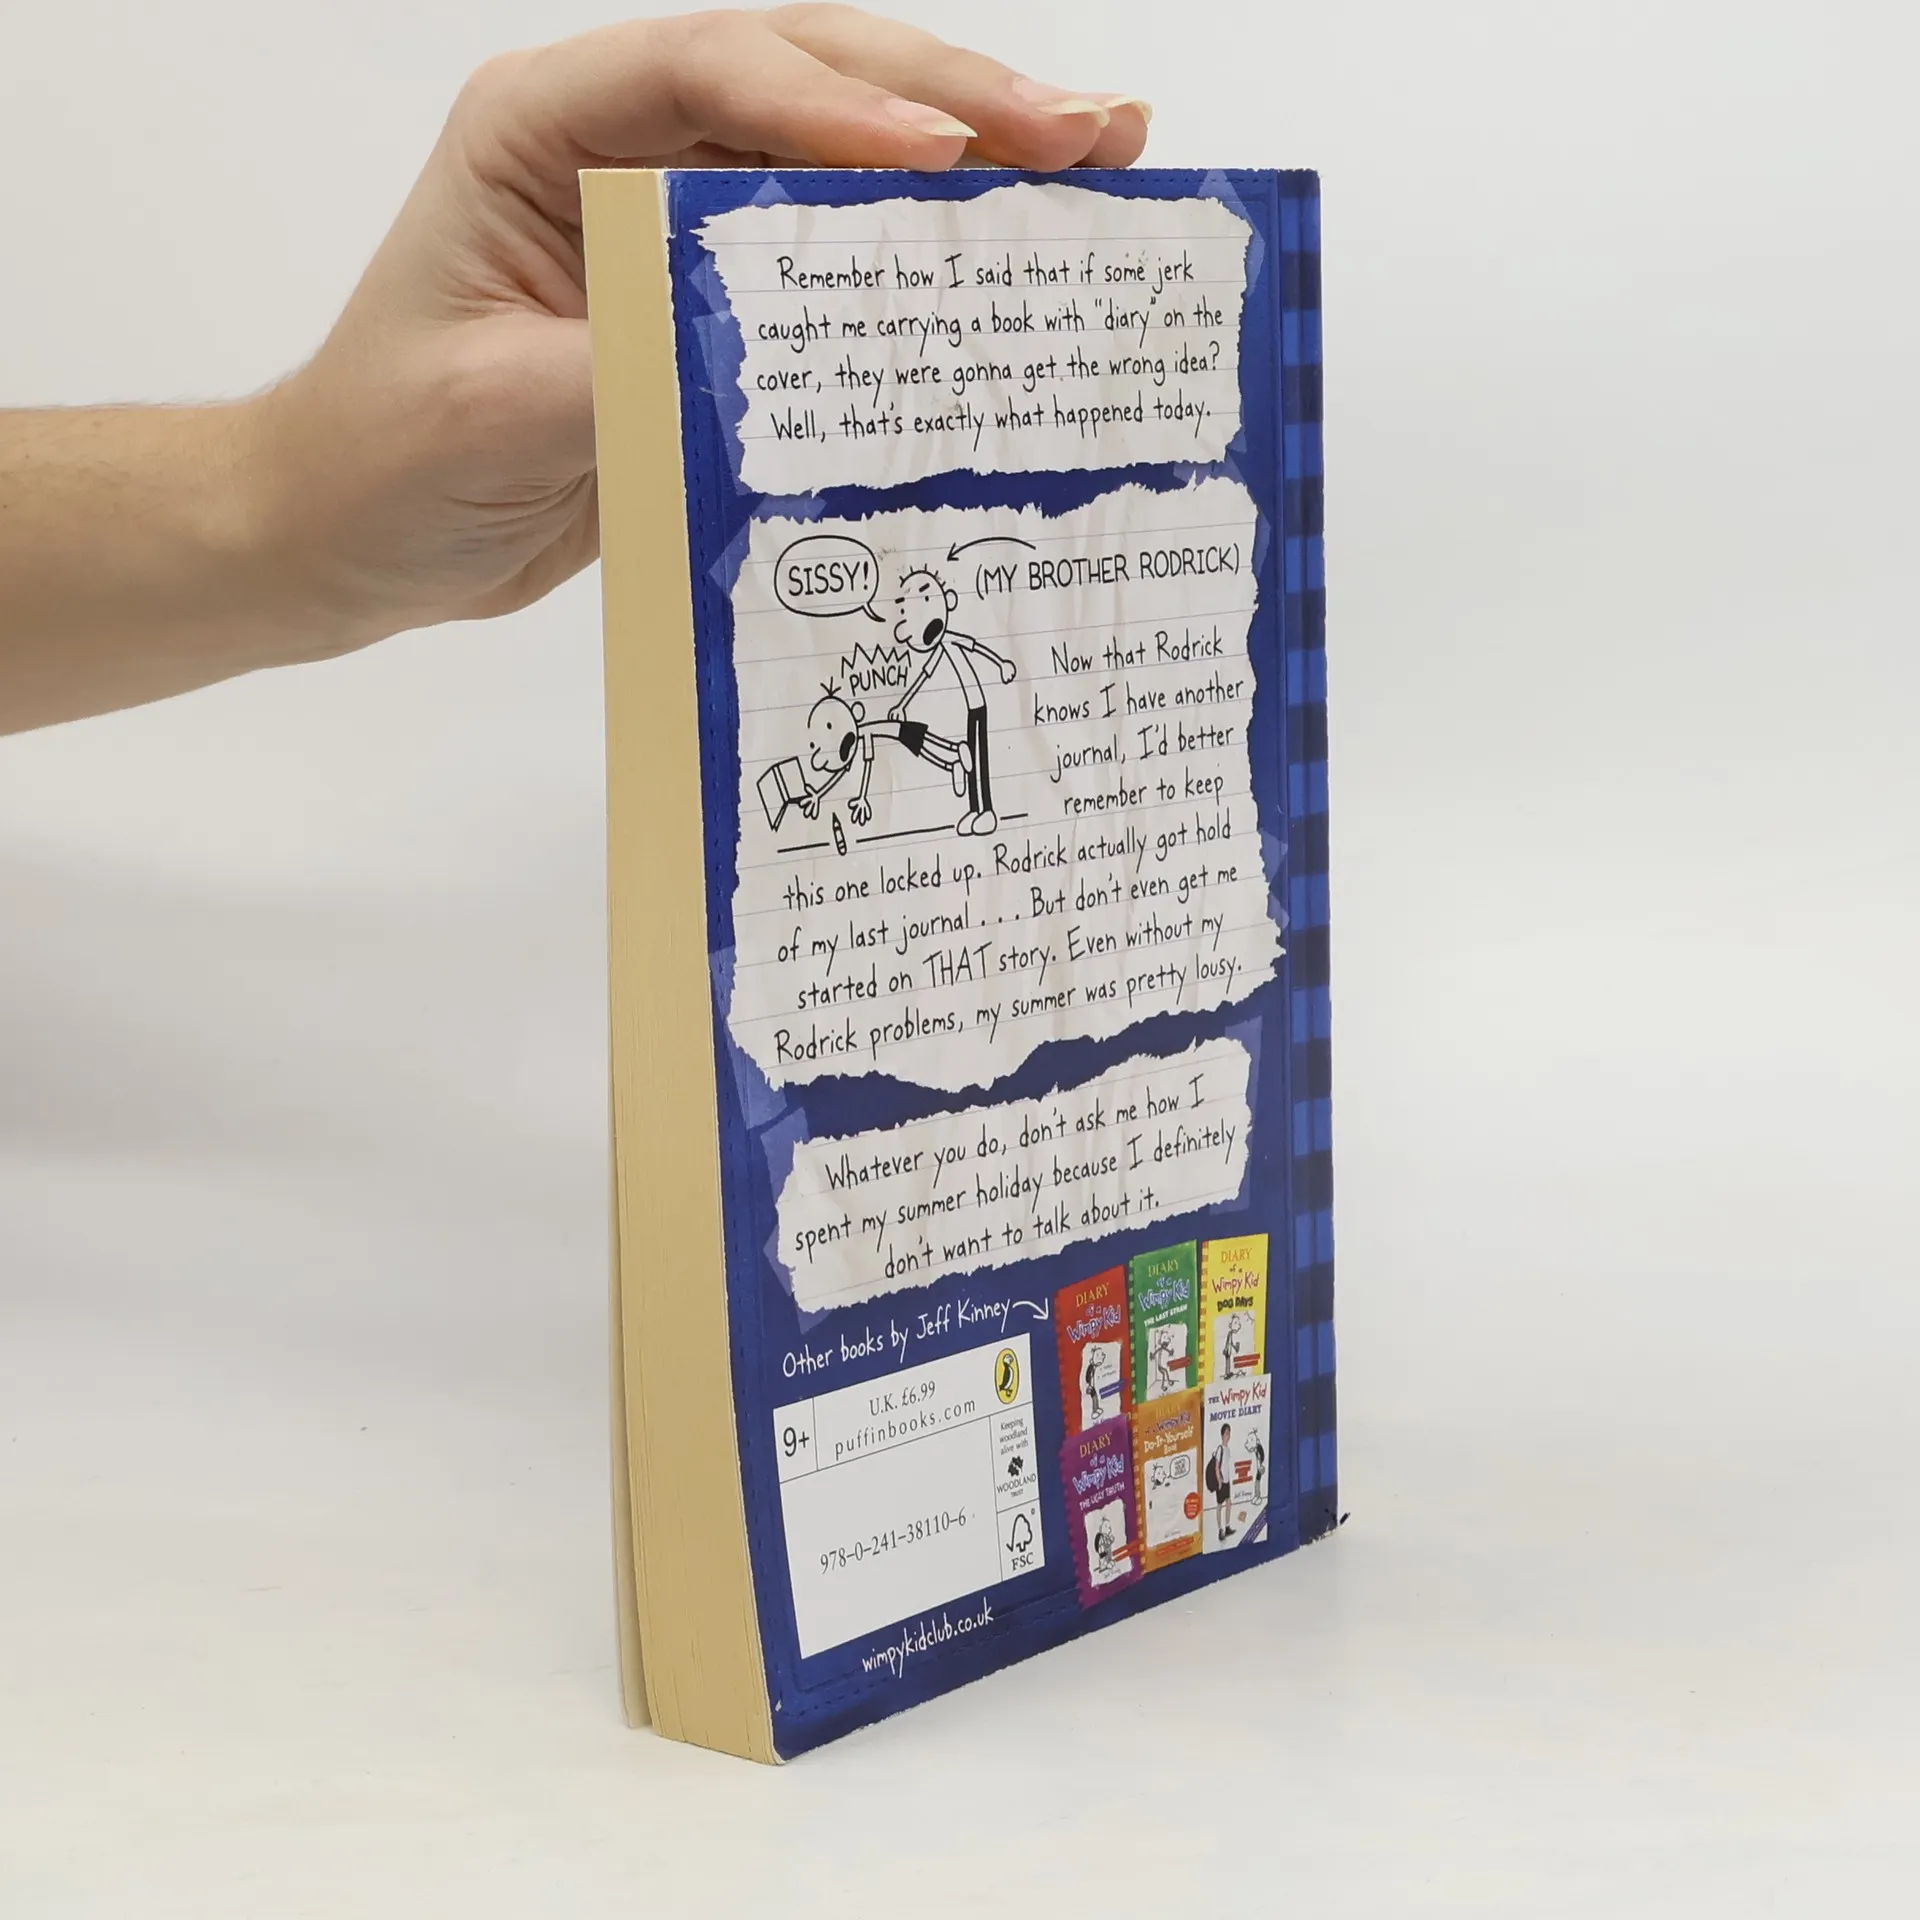 Remember how I said that if some jerk
caught me carrying a book with "diary" on the
cover, they were gonna get the wrong idea?
Well, that's exactly what happened today.
SISSY!
(MY BROTHER RODRICK)
PUNCH
Now that Rodrick
knows I have another
journal, I'd better
remember to keep
this one locked up. Rodrick actually got hold
of my last journal . . . But don't even get me
started on THAT story. Even without my
Rodrick problems, my summer was pretty lousy.
Whatever you do, don't ask me how I
spent my summer holiday because I definitely
don't want to talk about it.
Other books by Jeff Kinney
DIARY
of a
Wimpy Kid
DIARY
of a
Wimpy Kid
THE LAST STRAW
DIARY
of a
Wimpy Kid
DOG DAYS
DIARY
of a
Wimpy Kid
THE UGLY TRUTH
DIARY
Wimpy Kid
Do-It-Yourself
Book
THE Wimpy Kid
MOVIE DIARY
9+
U.K. £6.99
puffinbooks.com
Keeping
woodland
alive with
WOODLAND
TRUST
978-0-241-38110-6
FSC
wimpykidclub.co.uk